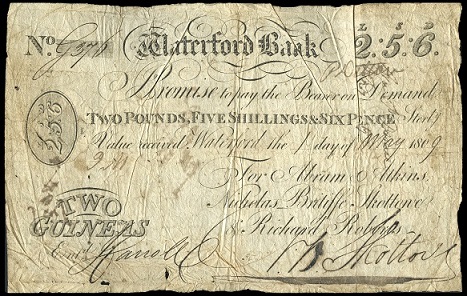 £ S D
No. Waterford Bank 2:5:6.
I Promise to pay the Bearer on Demand
TWO POUNDS, FIVE SHILLINGS & SIX PENCE Sterl.
Value received Waterford the 1 day of May 1809
2.5.6
For Abram Atkins.
Nicholas Britiffe Skottowe
& Richard Roberts.
TWO
GUINEAS
Entd.
Skottowe